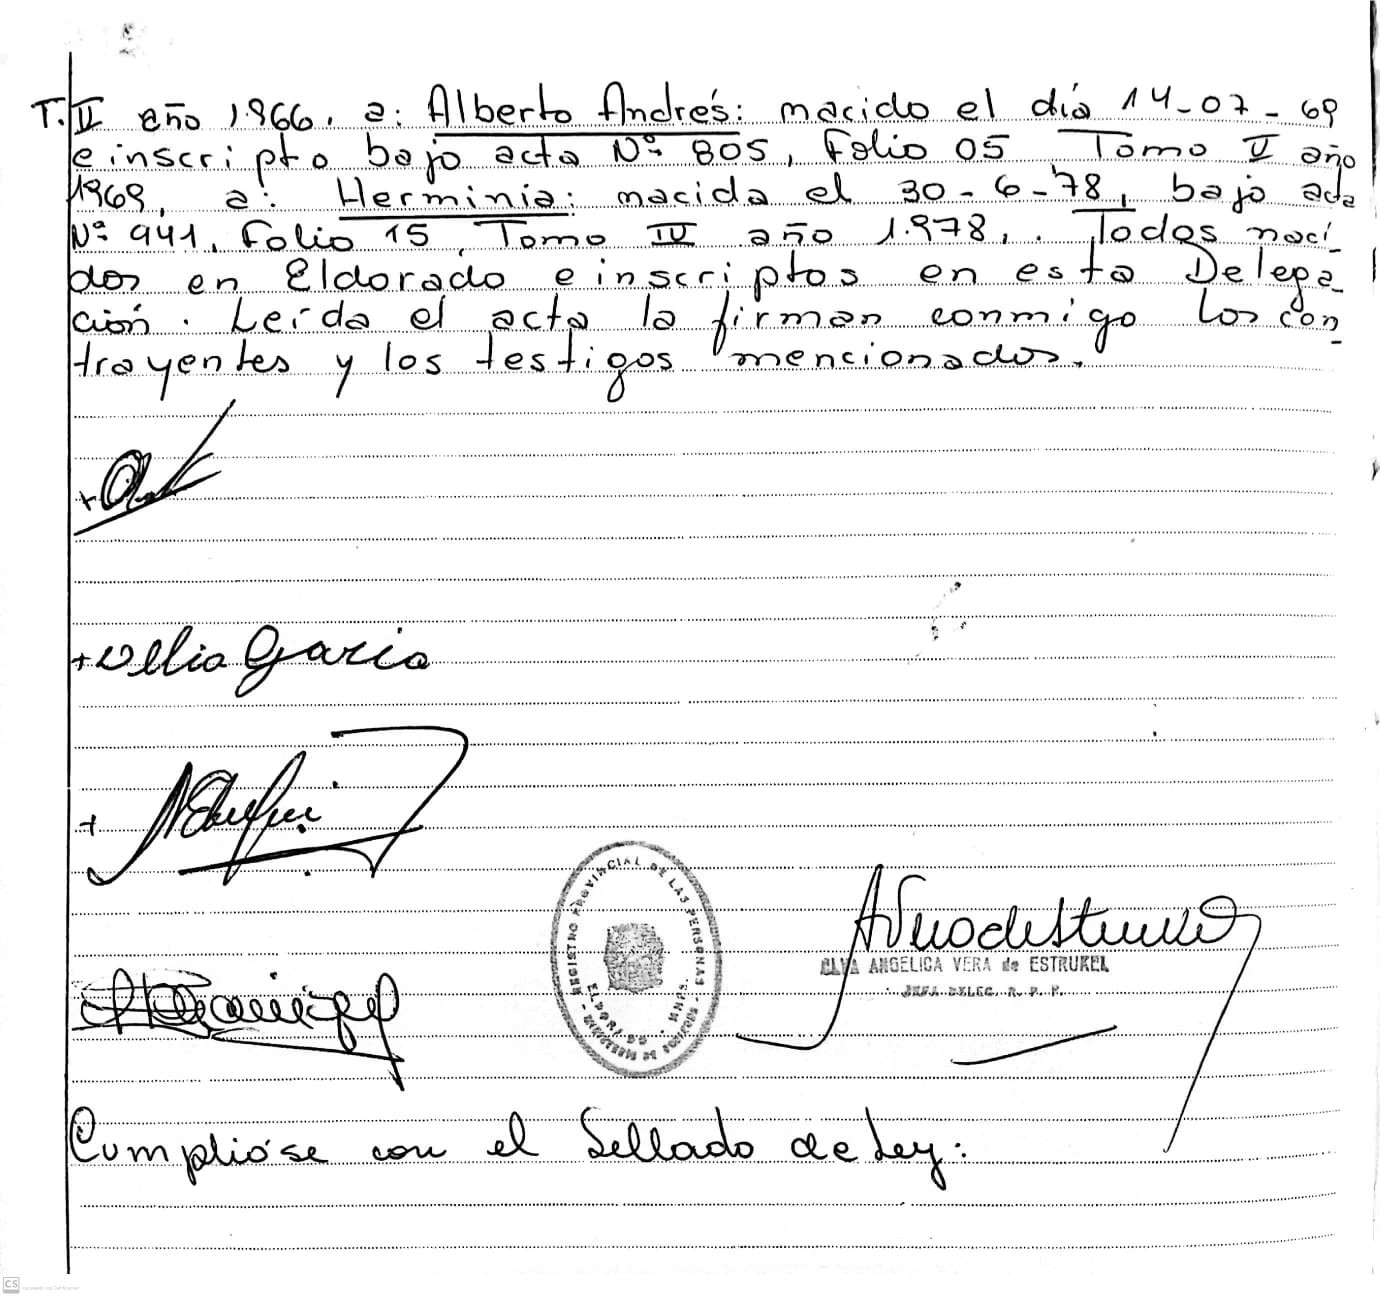 T. II año 1.966. a: Alberto Andrés: nacido el día 14-07-69
e inscripto bajo acta Nº 805, Folio 05 Tomo V año
1969, a: Herminia: nacida el 30-6-78, bajo acta
Nº 941, Folio 15, Tomo IV año 1.978,. Todos naci
dos en Eldorado e inscriptos en esta Delega_
ción. Leída el acta la firman conmigo los con_
trayentes y los testigos mencionados.
+
+ Garcia
+
REGISTRO PROVINCIAL DE LAS PERSONAS
ELDORADO - MNES.
ELVA ANGELICA VERA de ESTRUKEL
JEFA DELEG. R. P. P.
Cumplióse con el Sellado de Ley:
CS